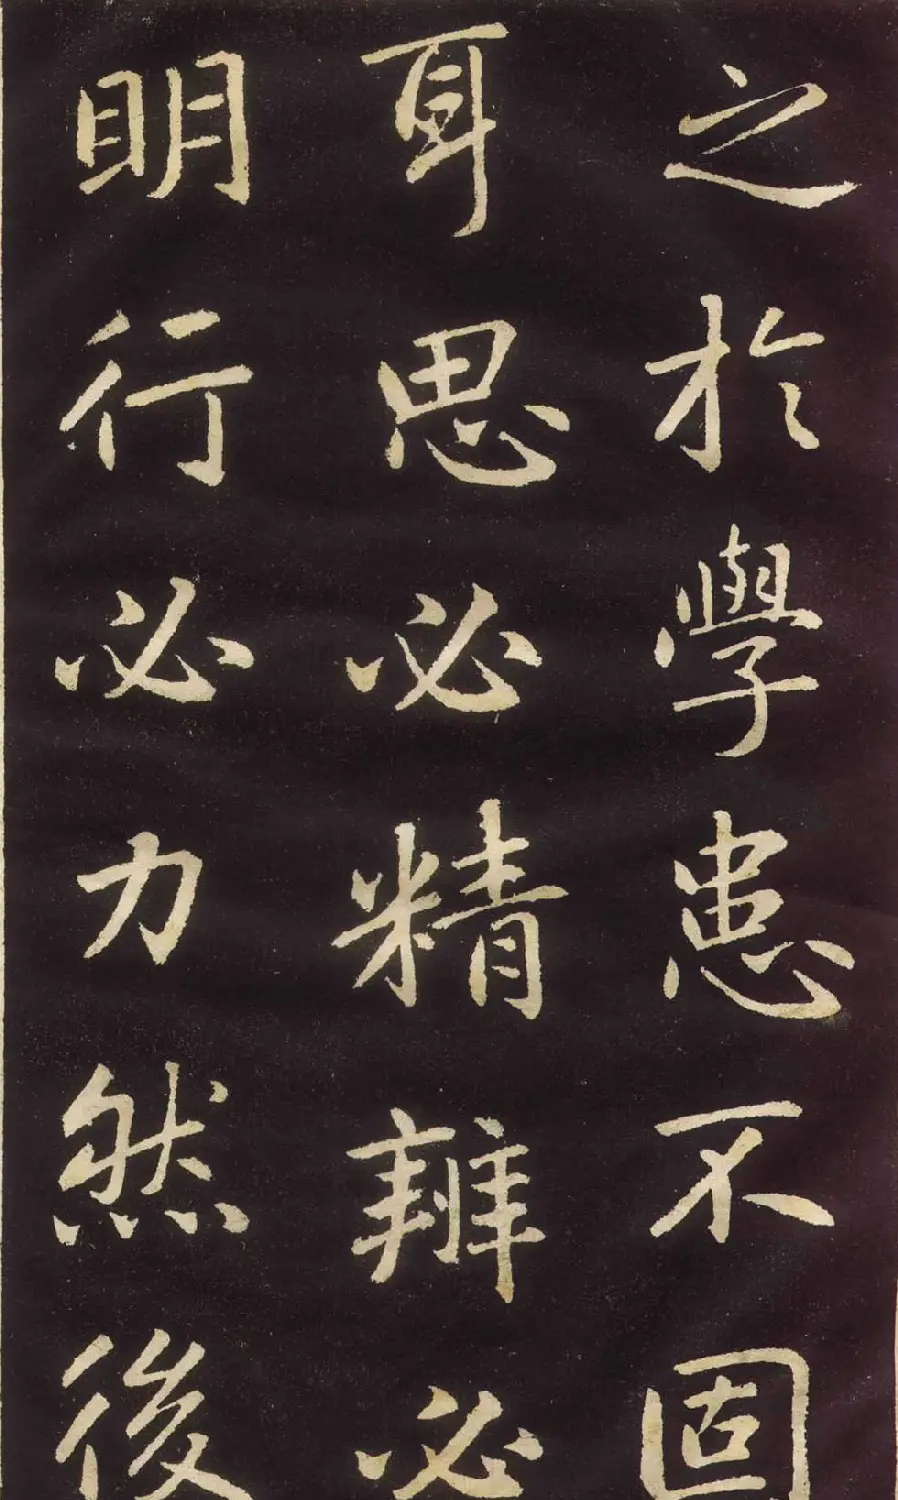 之於學患不固
耳思必精辨必
明行必力然後